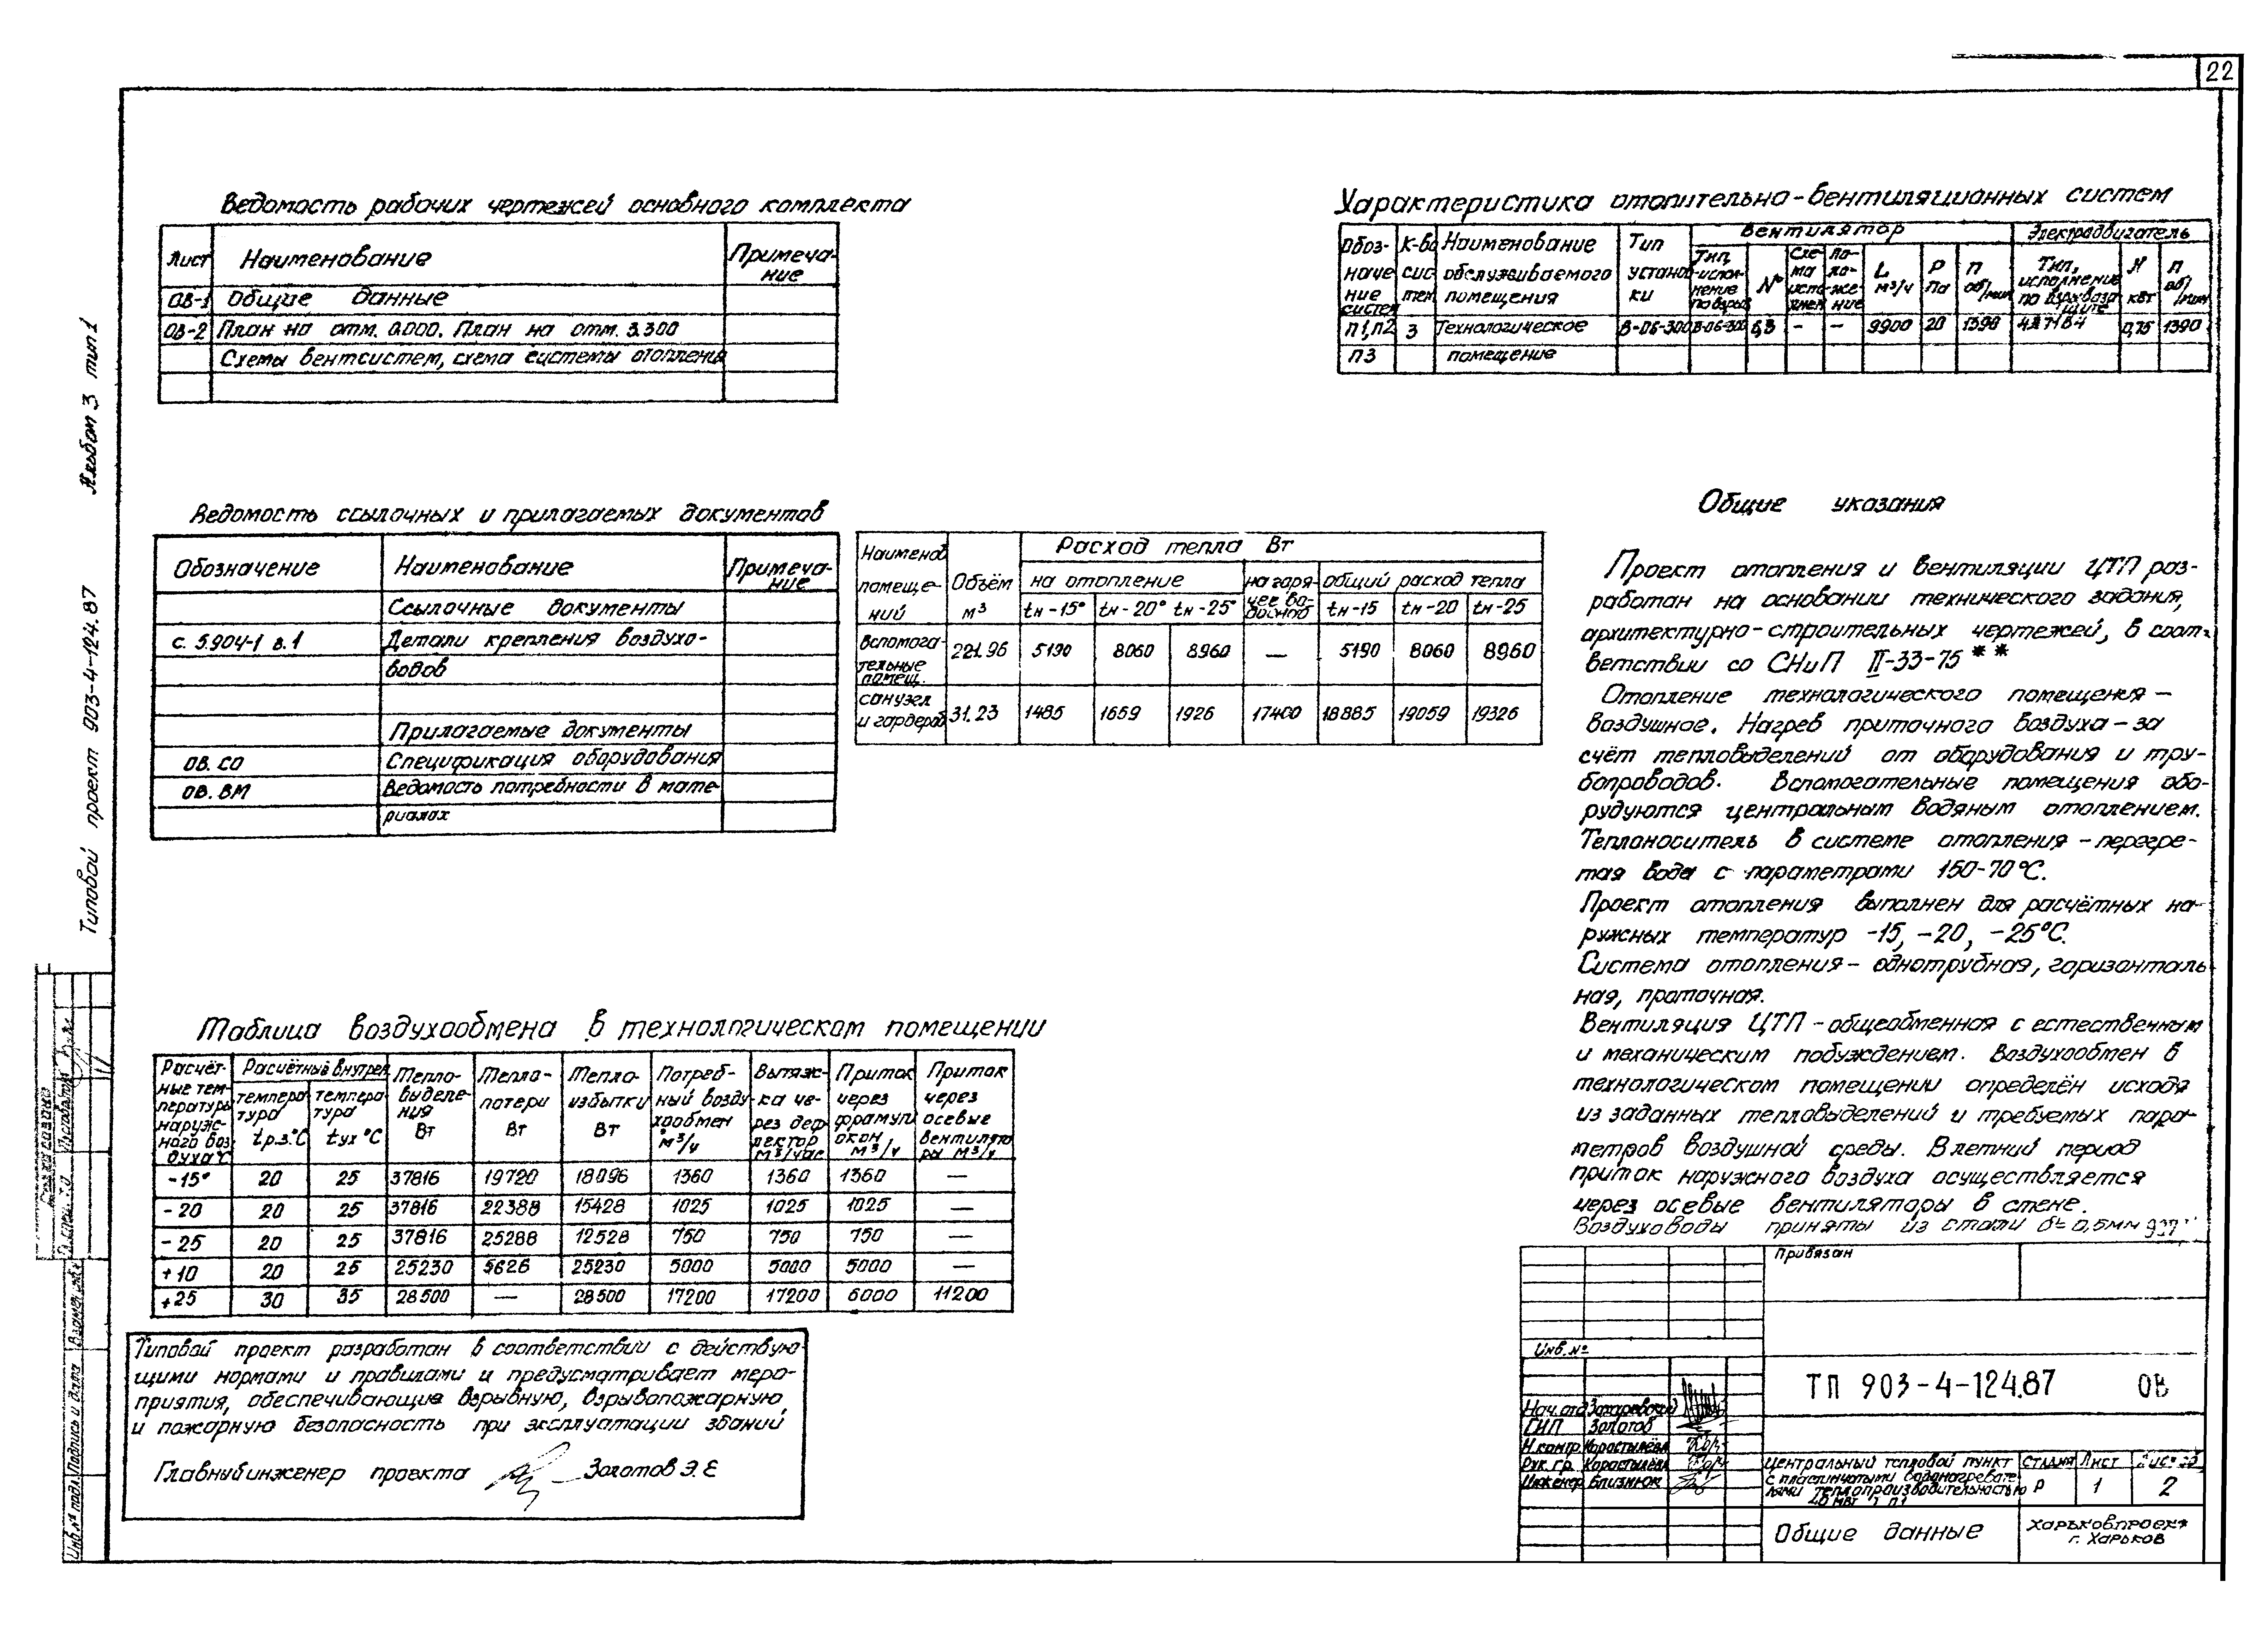 22
Альбом 3 тип 1
Типовой проект 903-4-124.87
Ведомость рабочих чертежей основного комплекта
Лист Наименование Примеча-
ние
ОВ-1 Общие данные
ОВ-2 План на отм. 0.000. План на отм. 3.300
Схемы вентсистем, схема системы отопления
Характеристика отопительно-вентиляционных систем
Обоз-
наче
ние
систем
К-во
сис
тем
Наименование
обслуживаемого
помещения
Тип
установ
ки
Вентилятор
Тип,
испол-
нение
по взрыв
№
Схе
ма
испо
лнен
По-
ло-
же-
ние
L
м³/ч
Р
Па
п
об/мин
Электродвигатель
Тип,
исполнение
по взрывоза
щите
N
кВт
п
об/мин
П1,П2 3 Технологическое В-06-300 В-06-300 6,3 – – 9900 20 1390 4А71В4 0,75 1390
П3 помещение
Ведомость ссылочных и прилагаемых документов
Обозначение Наименование Примеча-
ние
Ссылочные документы
с. 5.904-1 в.1 Детали крепления воздухо-
водов
Прилагаемые документы
ОВ. СО Спецификация оборудования
ОВ. ВМ Ведомость потребности в мате-
риалах
Наименов
помеще-
ний
Объём
м³
Расход тепла Вт
на отопление на горя-
чее во-
доснаб общий расход тепла
tн-15° tн-20° tн-25° tн-15 tн-20 tн-25
Вспомога-
тельные
помещ.
221.96 5190 8060 8960 — 5190 8060 8960
санузел
и гардероб
31.23 1485 1659 1926 17400 18885 19059 19326
Общие указания
Проект отопления и вентиляции ЦТП раз-
работан на основании технического задания,
архитектурно-строительных чертежей, в соот-
ветствии со СНиП II-33-75**
Отопление технологического помещения –
воздушное. Нагрев приточного воздуха – за
счёт тепловыделений от оборудования и тру-
бопроводов. Вспомогательные помещения обо-
рудуются центральным водяным отоплением.
Теплоноситель в системе отопления – перегре-
тая вода с параметрами 150-70°С.
Проект отопления выполнен для расчётных на-
ружных температур -15, -20, -25°С.
Система отопления – однотрубная, горизонталь
ная, проточная.
Вентиляция ЦТП – общеобменная с естественным
и механическим побуждением. Воздухообмен в
технологическом помещении определён исходя
из заданных тепловыделений и требуемых пара-
метров воздушной среды. В летний период
приток наружного воздуха осуществляется
через осевые вентиляторы в стене.
Воздуховоды приняты из стали δ= 0,5мм
Таблица воздухообмена в технологическом помещении
Расчёт-
ные тем-
пературы
наруж-
ного воз
духа°С
Расчётный внутрен
температура
tр.з.°С
температура
tух °С
Тепло-
выделе-
ния
Вт
Тепло-
потери
Вт
Тепло-
избытки
Вт
Потреб-
ный возду
хообмен
м³/ч
Вытяж-
ка че-
рез деф
лектор
м³/час
Приток
через
фрамуги
окон
м³/ч
Приток
через
осевые
вентилято
ры м³/ч
-15° 20 25 37816 19720 18096 1360 1360 1360 —
-20 20 25 37816 22388 15428 1025 1025 1025 —
-25 20 25 37816 25288 12528 750 750 750 —
+10 20 25 25230 5626 25230 5000 5000 5000 —
+25 30 35 28500 — 28500 17200 17200 6000 11200
Типовой проект разработан в соответствии с действую-
щими нормами и правилами и предусматривает меро-
приятия, обеспечивающие взрывную, взрывопожарную
и пожарную безопасность при эксплуатации зданий
Главный инженер проекта Золотов Э.Е
Привязан
Инв.№
ТП 903-4-124.87 ОВ
Нач.отд Захаревский
ГИП Золотов
Н.контр Коростылёва
Рук. гр. Коростылёва
Инженер Близнюк
Центральный тепловой пункт
с пластинчатыми водонагревате
лями теплопроизводительностью
Стадия Лист Листов
Р 1 2
Общие данные
Харьковпроект
г. Харьков
Согласовано
Инв № подл. Подпись и дата Взамен инв.№